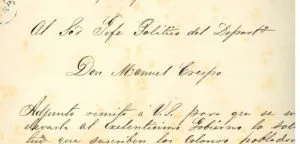 Al Sor Gefe Politico del Departo
Don Manuel Crespo
Adjunto remito á V.S. para que se
elevarla al Exelentisimo Gobierno la
que suscriben los Colonos